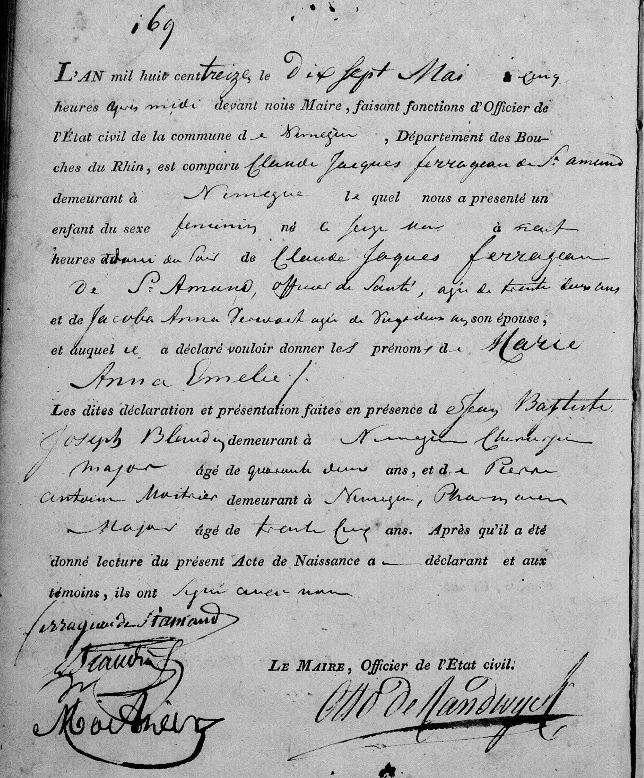 169
L'AN mil huit cent treize, le Dix Sept Mai à cinq
heures après midi devant nous Maire, faisant fonctions d'Officier de
l'État civil de la commune de Nimegue, Département des Bou-
ches du Rhin, est comparu Claude Jacques ferrageau de St. amand
demeurant à Nimegue lequel nous a presenté un
enfant du sexe feminin né le Seize Mai à
heures du Soir de Claude Jaques ferrageau
De St. Amand, officier de Santé, agé de trente deux ans
et de Jacoba Anna agée de ans, son épouse;
et auquel il a déclaré vouloir donner les prénoms de Marie
Anna Emelie.
Les dites déclaration et présentation faites en présence de Jean Baptiste
Joseph demeurant à Nimegue Chirurgien
major âgé de quarante deux ans, et de Pierre
antoine demeurant à Nimegue, Pharmacien
Major âgé de trente Cinq ans. Après qu'il a été
donné lecture du présent Acte de Naissance au déclarant et aux
témoins, ils ont signé avec nous
ferrageau de St amand
LE MAIRE, Officier de l'Etat civil.